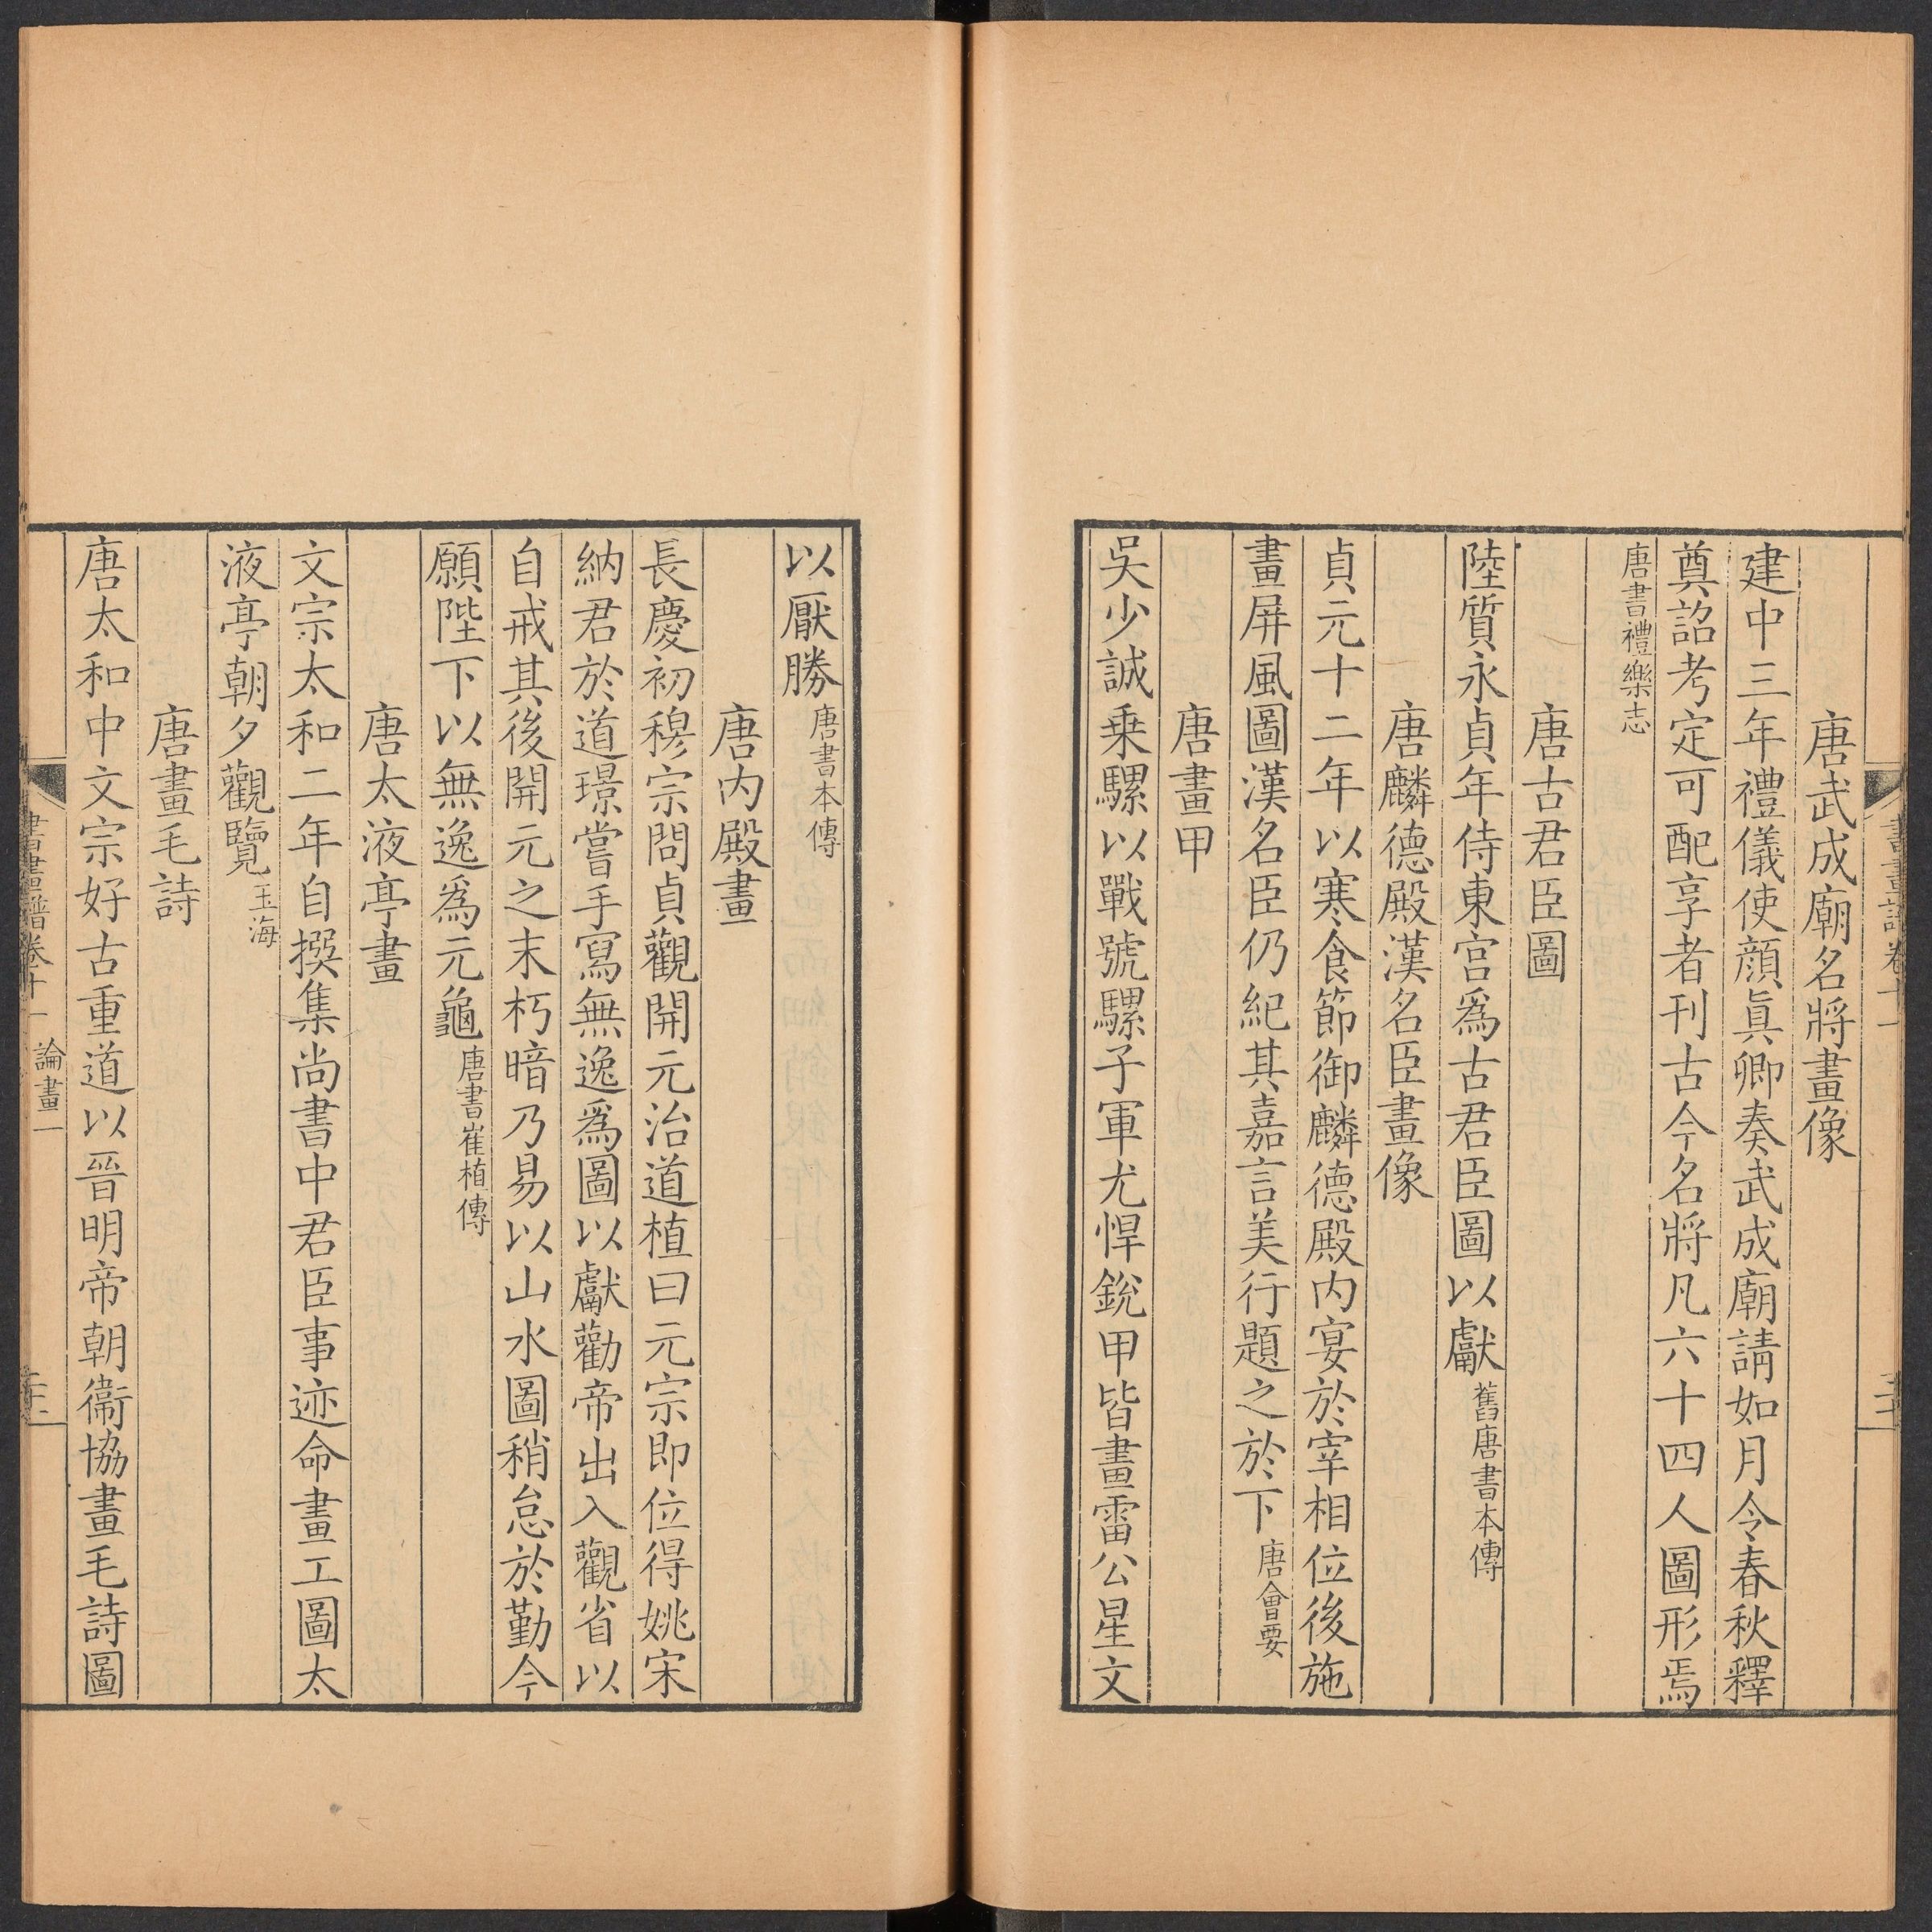 唐武成廟名將畫像
建中三年禮儀使顔眞卿奏武成廟請如月令春秋釋
奠詔考定可配享者刋古今名將凡六十四人圖形焉
唐書禮樂志
唐古君臣圖
陸質永貞年侍東宫爲古君臣圖以獻舊唐書本傳
唐麟德殿漢名臣畫像
貞元十二年以寒食節御麟德殿内宴於宰相位後施
畫屏風圖漢名臣仍紀其嘉言美行題之於下唐會要
唐畫甲
吳少誠乗騾以戰號騾子軍尤悍銳甲皆畫雷公星文
以厭勝唐書本傳
唐内殿畫
長慶初穆宗問貞觀開元治道植曰元宗即位得姚宋
納君於道璟嘗手寫無逸爲圖以獻勸帝出入觀省以
自戒其後開元之末朽暗乃易以山水圖稍怠於勤今
願陛下以無逸爲元龜唐書崔植傳
唐太液亭畫
文宗太和二年自撰集尚書中君臣事迹命畫工圖太
液亭朝夕觀覽玉海
唐畫毛詩
唐太和中文宗好古重道以晉明帝朝衞協畫毛詩圖
書畫譜卷十一 論畫一